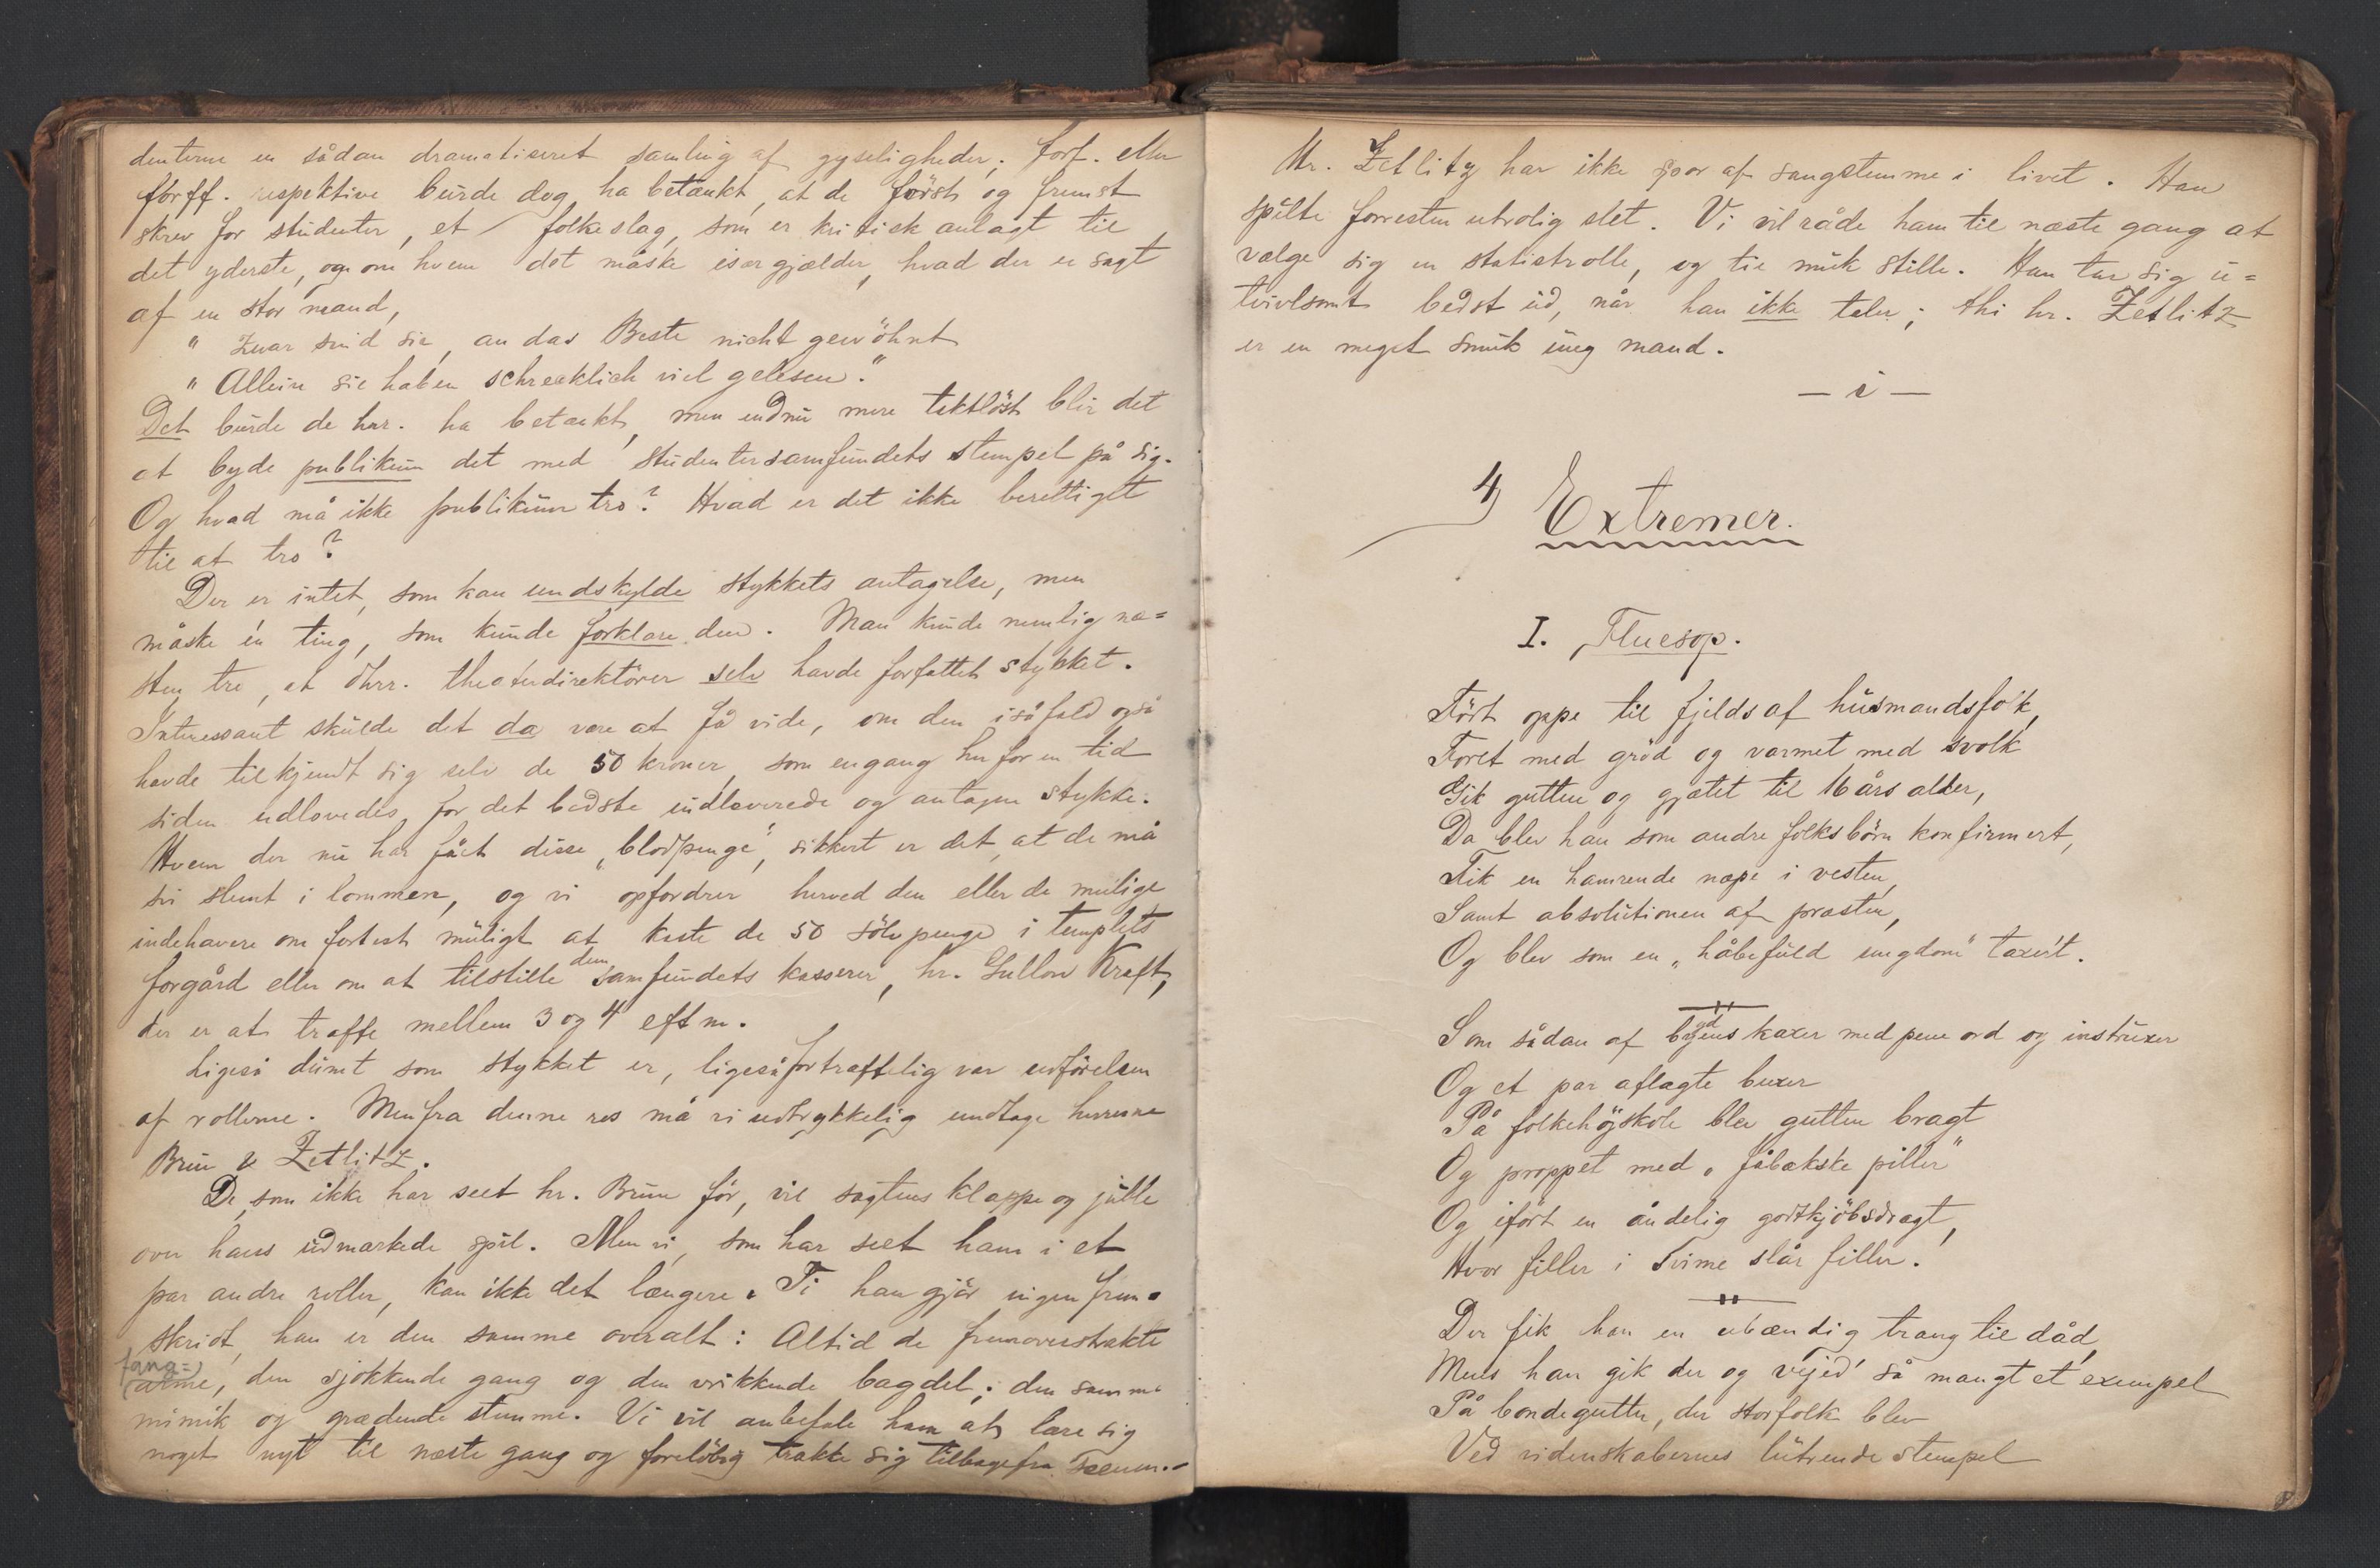 denterne en sådan dramatiseret samling af gyseligheder. forf. eller
forff. respektive burde dog ha betænkt, at de först og fremst
skrev for studenter, et folkeslag, som er kritisk anlagt til
det yderste, og om hvem det måske især gjælder, hvad der er sagt
af en stor mand,
" Zwar sind sie, an das Beste nicht gewöhnt
" Allein sie haben schrecklich viel gelesen."
Det burde de hrr. ha betænkt, men endnu mere taktlöst blir det
at byde publikum det med studentersamfundets stempel på sig.
Og hvad må ikke publikum tro? Hvad er det ikke berettiget
til at tro?
Der er intet, som kan undskylde stykkets antagelse, men
måske én ting, som kunde forklare den. Man kunde nemlig næ=
sten tro, at dhrr. theaterdirektörer selv havde forfattet stykket.
Interessant skulde det da være at få vide, om den i så fald også
havde tilkjendt sig selv de 50 kroner, som engang her for en tid
siden udlovedes for det bedste indleverede og antagne stykke.
Hvem der nu har fåct disse „blodpenge", sikkert er det, at de må
svi slemt i lommen, og vi opfordrer herved den eller de mulige
indehavere om fortest muligt at kaste de 50 sölvpenge i templets
forgård eller om at tilstille dem samfundets kasserer, hr. Gulløw Kraft,
der er at træffe mellem 3 og 4 eftm.
Ligeså dumt som stykket er, ligeså fortræffelig var udförelsen
af rollerne. Men fra denne ros må vi udtrykkelig undtage herrerne
Brun & Zetlitz.
De, som ikke har seet hr. Brun för, vil sagtens klappe og juble
over hans udmærkede spil. Men vi, som har seet ham i et
par andre roller, kan ikke det længere. Ti han gjör ingen frem=
skridt, han er den samme overalt: Altid de fremoverstrakte
(fang=)
arme, den sjokkende gang og den vrikkende bagdel; den samme
mimik og grædende stemme. Vi vil anbefale ham at lære sig
noget nyt til næste gang og foreløbig trække sig tilbage fra scenen.
Hr. Zetlitz har ikke spor af sangstemme i livet. Han
spilte forresten utrolig slet. Vi vil råde ham til næste gang at
vælge sig en statistrolle, og tie smuk stille. Han tar sig u=
tvivlsomt bedst ud, når han ikke taler; thi hr. Zetlitz
er en meget smuk ung mand.
— i —
4) Extremer.
I. Fluesop.
Födt oppe til fjelds af husmandsfolk,
Foret med gröd og varmet med svolk
Gik gutten og gjætet til 16 års alder,
Da blev han som andre folks börn konfirmert,
Fik en hamrende næpe i vesten,
Samt absolutionen af præsten,
Og blev som en „håbefuld ungdom" taxert.
Som sådan af bygdens kaxer med pene ord og instruxer
Og et par aflagte buxer
På folkehöjskole blev gutten bragt
Og proppet med „fåbækske piller"
Og iført en åndelig godtkjöbsdragt,
Hvor filler i Svime slår filler.
Der fik han en ubændig trang til dåd,
Mens han gik der og vejed' så mangt et exempel
På bondegutter, der storfolk blev
Ved videnskabernes lutrende stempel